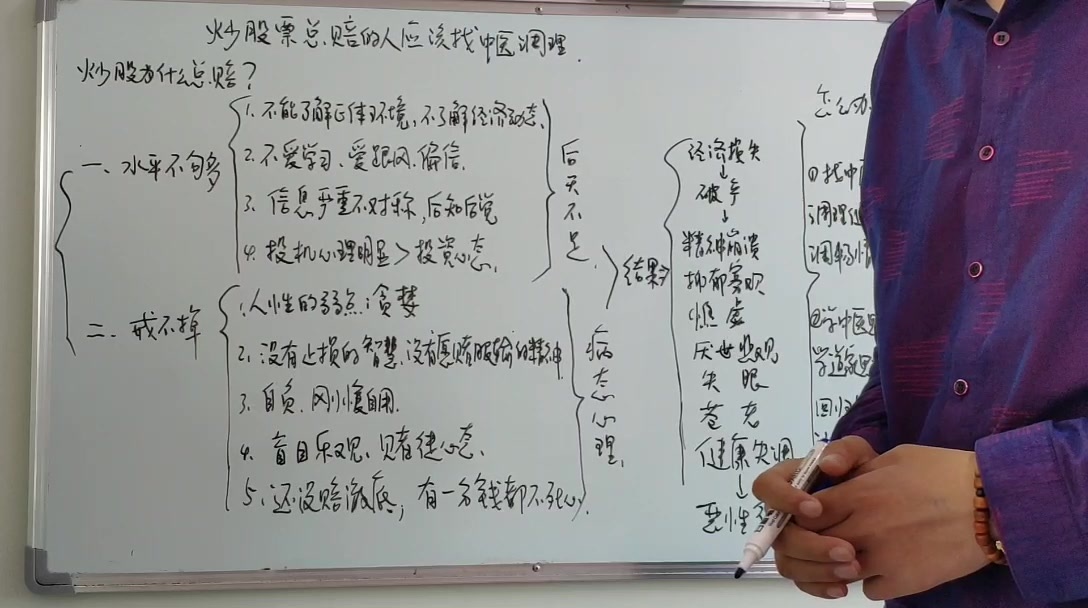 炒股票总赔的人应该找中医调理.
炒股为什么总赔?
一、水平不句多
1、不能了解正体环境,不了解经济动态、
2、不爱学习、爱跟风、偏信.
3、信息严重不对称,后知后觉
4、投机心理明显>投资心态、
后天不足.
二、戒不掉
1、人性的弱点:贪婪
2、没有止损的智慧、没有愿赌服输的精神
3、自负、刚愎自用.
4、盲目乐观、赌徒心态、
5、还没赔澈底,有一分钱都不死心.
病态心理.
结果⇒
经济损失
↓
破产
↓
精神崩溃
抑郁寡欢
焦虑
厌世悲观
失眠
苍老
健康失调
↓
恶性
怎么办
①找中
调理
调畅情
②学中医
学道家思
回归